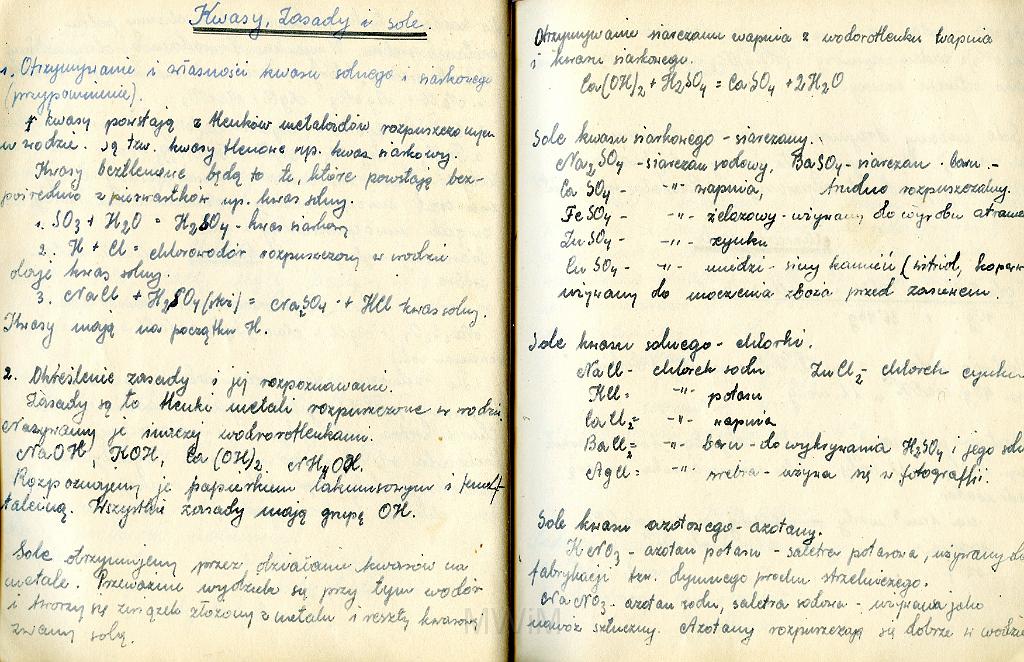 Kwasy, Zasady i sole.
1. Otrzymywanie i własności kwasu solnego i siarkowego
(przypomnienie).
kwasy powstają z tlenków metaloidów rozpuszczonych
w wodzie. są tzw. kwasy tlenowe np. kwas siarkowy.
Kwasy beztlenowe będą to te, które powstają bez-
pośrednio z pierwiastków np. kwas solny.
1. SO3 + H2O = H2SO4 - kwas siarkowy
2. H + Cl = chlorowodór rozpuszczony w wodzie
daje kwas solny.
3. NaCl + H2SO4 (stęż) = Na2SO4 + HCl kwas solny.
Kwasy mają na początku H.
2. Określenie zasady i jej rozpoznawanie.
Zasady są to tlenki metali rozpuszczone w wodzie
Nazywamy je inaczej wodorotlenkami.
NaOH, KOH, Ca(OH)2. NH4OH.
Rozpoznajemy je papierkiem lakmusowym i fenolf
taleiną. Wszystkie zasady mają grupę OH.
Sole otrzymujemy przez działanie kwasów na
metale. Przeważnie wydziela się przy tym wodór
i tworzy się związek złożony z metalu i reszty kwasowej
zwany solą.
Otrzymywanie siarczanu wapnia z wodorotlenku wapnia
i kwasu siarkowego.
Ca(OH)2 + H2SO4 = CaSO4 + 2H2O
Sole kwasu siarkowego - siarczany.
Na2SO4 - siarczan sodowy, BaSO4 - siarczan baru. -
CaSO4 - -"- wapnia, trudno rozpuszczalny.
FeSO4 - -"- żelazowy - używany do wyrobu atrame
ZnSO4 - -"- cynku
CuSO4 - -"- miedzi - siny kamień (witriol, koperw
używany do moczenia zboża przed zasiewem.
Sole kwasu solnego - chlorki.
NaCl - chlorek sodu ZnCl2 - chlorek cynku
KCl = -"- potasu
CaCl2 = -"- wapnia
BaCl2 = -"- baru - do wykrywania H2SO4 i jego soli
AgCl = -"- srebra - używa się w fotografii.
Sole kwasu azotowego - azotany.
KNO3 - azotan potasu - saletra potasowa, używany do
fabrykacji tzw. dymnego prochu strzelniczego.
NaNO3 - azotan sodu, saletra sodowa - używana jako
nawóz sztuczny. Azotany rozpuszczają się dobrze w wodzie
MWiM